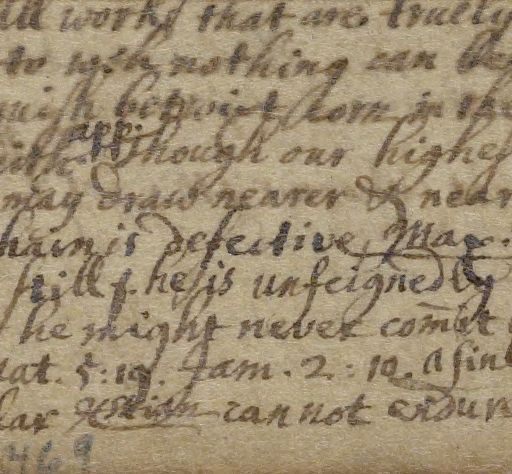 all works that are truely
to wch nothing can be
betwixt them in the
app.
Though our highes
may draw nearer & near
is defective, Max.
still he is unfeignedly
he might never com̄it
at. 5:19. Jam. 2:10. a sin
cannot endure
469